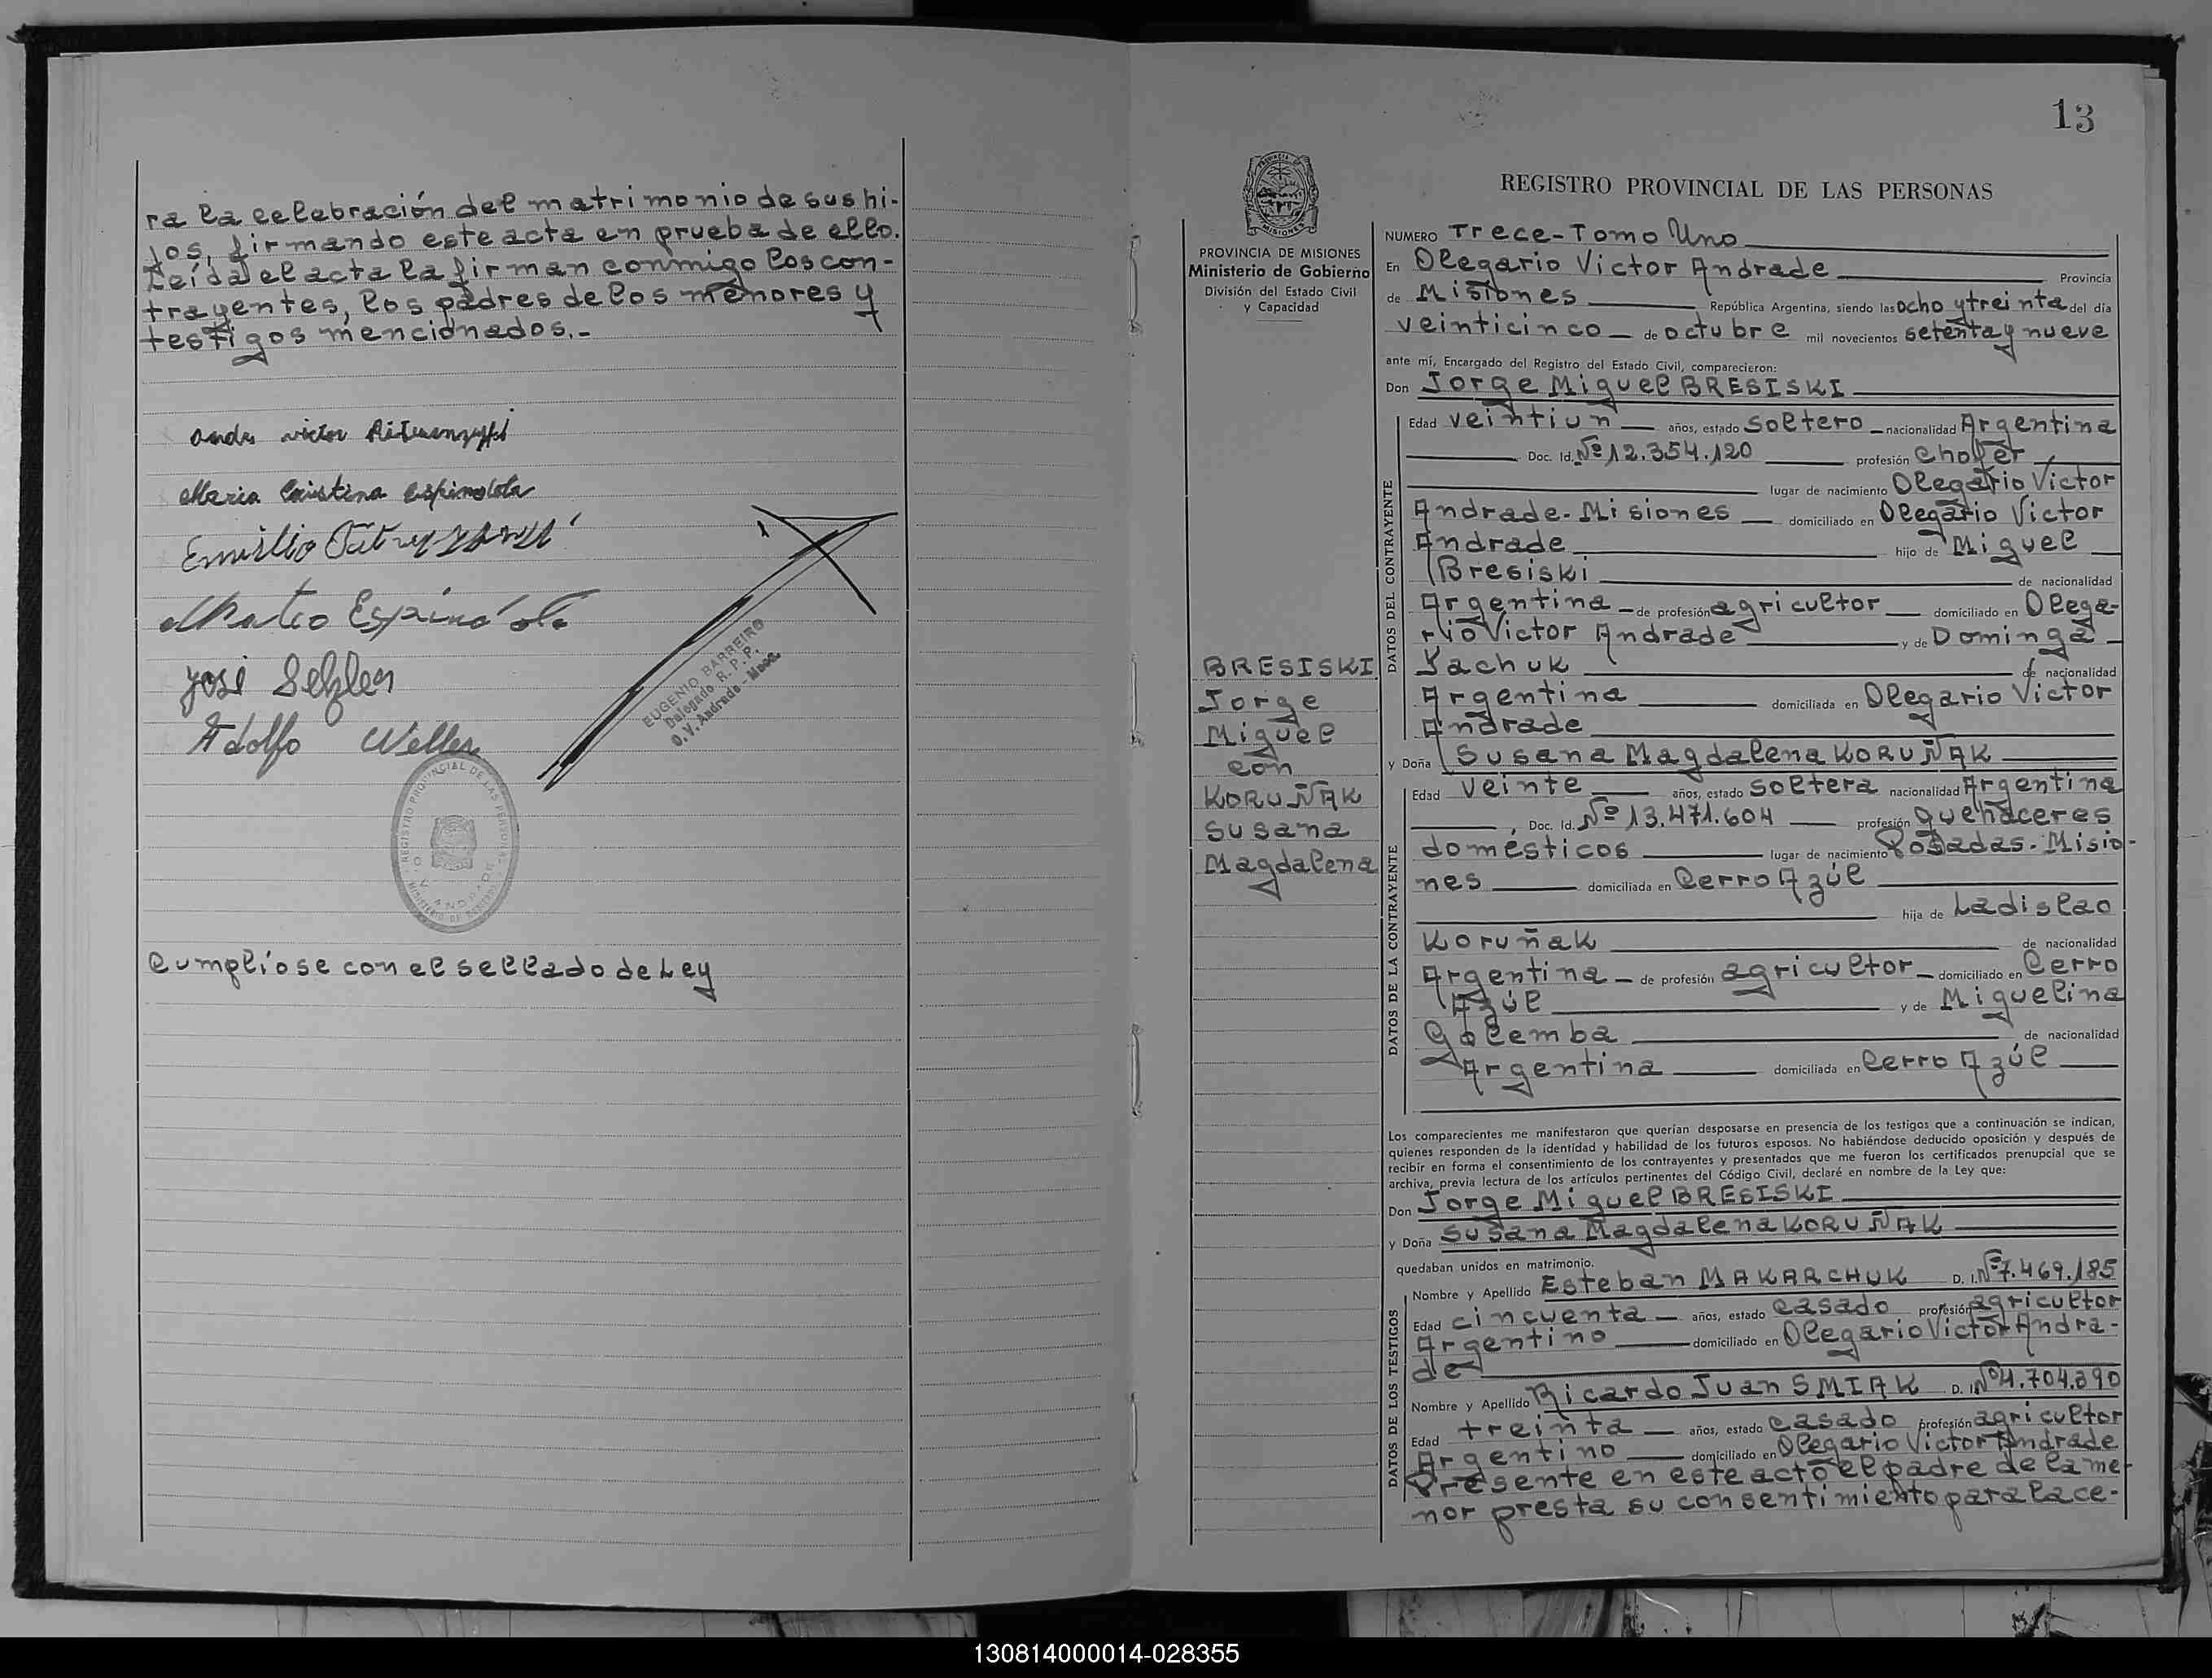 ra la celebración del matrimonio de sus hi-
jos, firmando este acta en prueba de ello.
Leída el acta la firman conmigo los con-
trayentes, los padres de los menores y
testigos mencionados.-
Maria Cristina Espindola
Emilio
Mateo Espíndola
José
Adolfo Weller
EUGENIO BARREIRO
Delegado R. P. P.
O. V. Andrade - Mnes.
REGISTRO PROVINCIAL DE LAS PERSONAS
Cumplióse con el sellado de Ley
13
PROVINCIA DE MISIONES
Ministerio de Gobierno
División del Estado Civil
y Capacidad
BRESISKI
Jorge
Miguel
con
KORUÑAK
Susana
Magdalena
REGISTRO PROVINCIAL DE LAS PERSONAS
NUMERO Trece-Tomo Uno
En Olegario Victor Andrade Provincia
de Misiones República Argentina, siendo las ocho y treinta del día
veinticinco de octubre mil novecientos setenta y nueve
ante mí, Encargado del Registro del Estado Civil, comparecieron:
Don Jorge Miguel BRESISKI
DATOS DEL CONTRAYENTE
Edad veintiun años, estado soltero nacionalidad Argentina
Doc. Id. Nº 12.354.120 profesión chofer
lugar de nacimiento Olegario Victor
Andrade-Misiones domiciliado en Olegario Victor
Andrade hijo de Miguel
Bresiski de nacionalidad
Argentina de profesión agricultor domiciliado en Olega-
rio Victor Andrade y de Dominga
Yachuk de nacionalidad
Argentina domiciliada en Olegario Victor
Andrade
y Doña Susana Magdalena KORUÑAK
DATOS DE LA CONTRAYENTE
Edad veinte años, estado soltera nacionalidad Argentina
Doc. Id. Nº 13.471.604 profesión quehaceres
domésticos lugar de nacimiento Posadas-Misio-
nes domiciliada en Cerro Azúl
hija de Ladislao
Koruñak de nacionalidad
Argentina de profesión agricultor domiciliado en Cerro
Azúl y de Miguelina
Golemba de nacionalidad
Argentina domiciliada en Cerro Azúl
Los comparecientes me manifestaron que querían desposarse en presencia de los testigos que a continuación se indican,
quienes responden de la identidad y habilidad de los futuros esposos. No habiéndose deducido oposición y después de
recibir en forma el consentimiento de los contrayentes y presentados que me fueron los certificados prenupcial que se
archiva, previa lectura de los artículos pertinentes del Código Civil, declaré en nombre de la Ley que:
Don Jorge Miguel BRESISKI
y Doña Susana Magdalena KORUÑAK
quedaban unidos en matrimonio.
DATOS DE LOS TESTIGOS
Nombre y Apellido Esteban MAKARCHUK D. I. Nº 7.469.185
Edad cincuenta años, estado casado profesión agricultor
Argentino domiciliado en Olegario Victor Andra-
de
Nombre y Apellido Ricardo Juan SMIAK D. I. Nº
Edad treinta años, estado casado profesión agricultor
Argentino domiciliado en Olegario Victor Andrade
Presente en este acto el padre de la me-
nor presta su consentimiento para la ce-
130814000014-028355